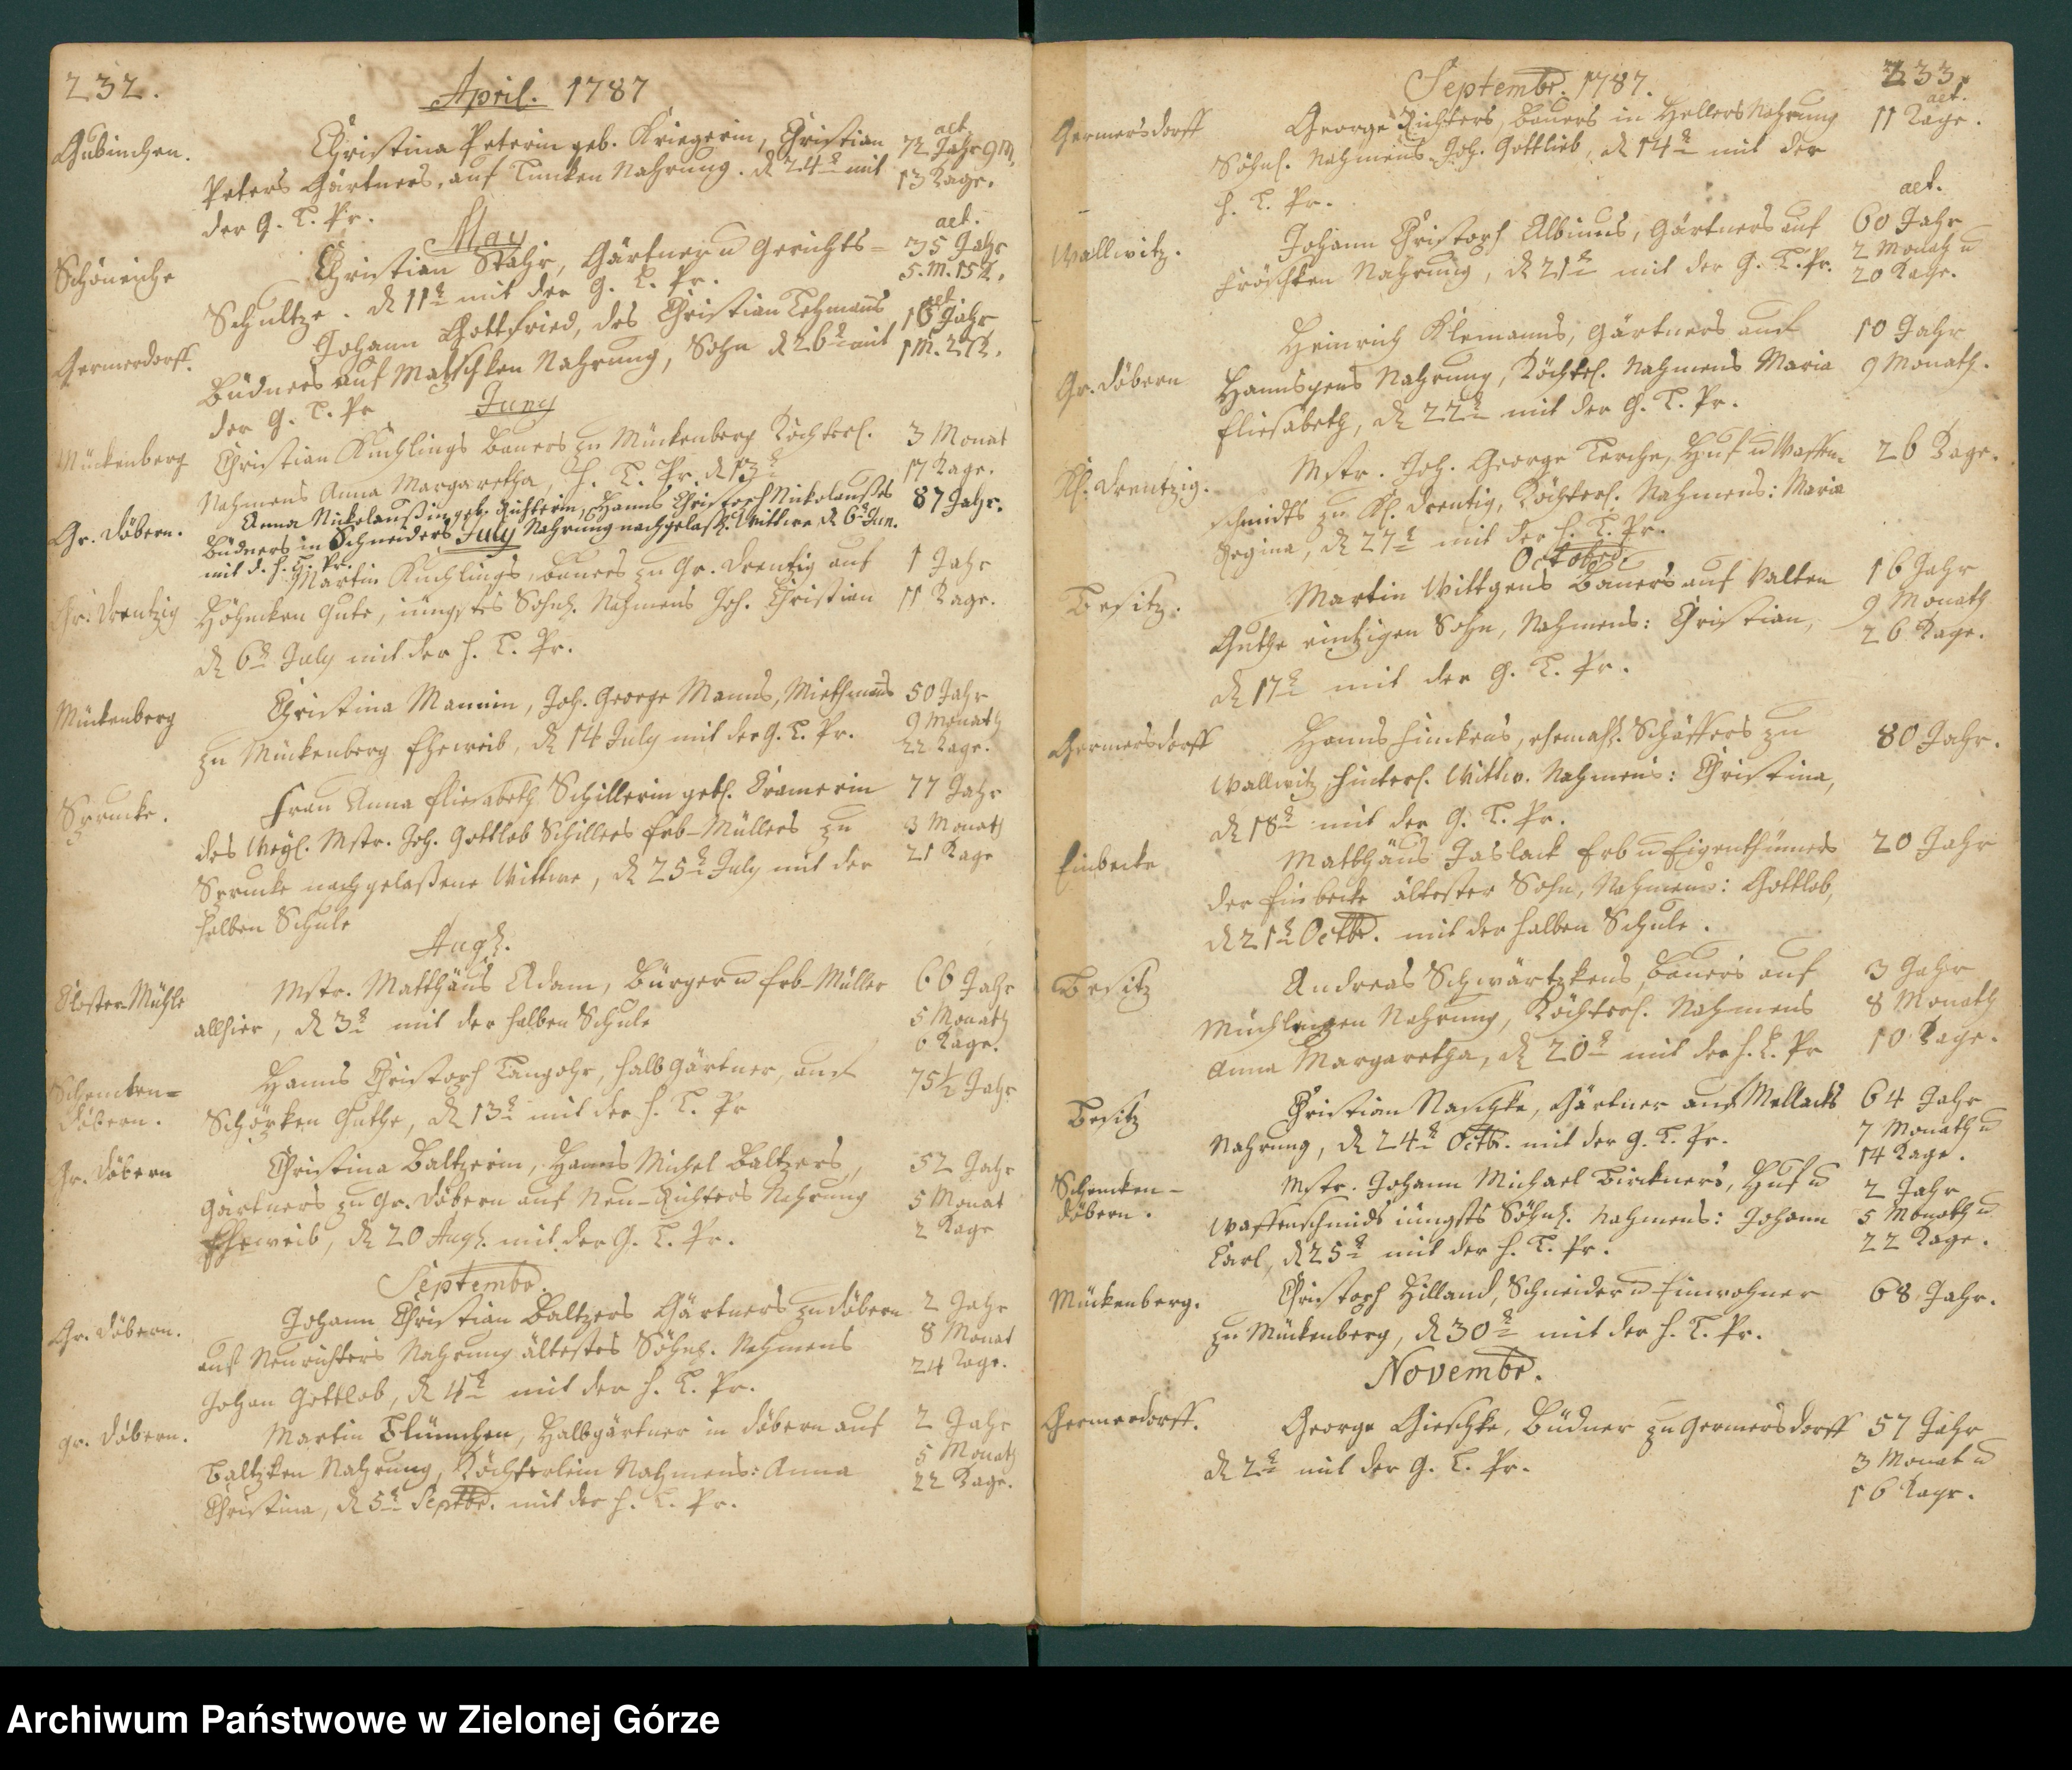 232.
April. 1787
Gubinchen.
Christina Peterin geb. Kriegerin, Christian
Peters Gärtners, auf Tunken Nahrung. d 24t mit
der G. L. Pr.
aet.
72 Jahr 9 M.
13 Tage.
May
Schöneiche
Christian Stahr, Gärtner u Gerichts=
Schultze. d 11t mit der G. L. Pr.
aet.
35 Jahr
5. M. 15 T.
Germersdorff.
Johann Gottfried, des Christian Lehmanns
Büdners auf Matschken Nahrung, Sohn d 26t mit
der G. L. Pr
aet.
16 Jahr
1 M. 2 T.
Juny
Mückenberg
Christian Kuchlings Bauers zu Mückenberg Töchterl.
Nahmens Anna Margaretha, H. L. Pr. d 13t
3 Monat
17 Tage.
Gr. Döbern.
Anna Nickolaußin geb. Richterin, Hanns Christoph Nickolaußes
Büdners in Schneiders Nahrung nachgelaß. Wittwe d 6t Jun.
mit d. h. L. Pr.
87 Jahr.
July
Gr. Drentzig
Martin Kuchlings, Bauers zu Gr. Drentzig auf
Höhncken Gute, jüngstes Söhnl. Nahmens Joh. Christian
d 6t July mit der h. L. Pr.
1 Jahr
11 Tage.
Mückenberg
Christina Mannin, Joh. George Manns, Miethmans
zu Mückenberg Eheweib, d 14 July mit der G. L. Pr.
50 Jahr
9 Monath
22 Tage.
Sprucke.
Frau Anna Eliesabeth Schillerin geb. Cramerin
des Weyl. Mstr. Joh. Gottlob Schillers Erb-Müllers zu
Sprucke nachgelaßene Wittwe, d 25t July mit der
halben Schule
77 Jahr
3 Monath
21 Tage
Augl.
Closter-Mühle
Mstr. Matthäus Adam, Bürger u Erb-Müller
allhier, d 3t mit der halben Schule
66 Jahr
5 Monath
6 Tage.
Schencken=
döbern.
Hanns Christoph Langohr, halb Gärtner, auf
Guthe, d 13t mit der h. L. Pr
75 1/2 Jahr
Gr. Döbern
Christina Baltzerin, Hanns Michel Baltzers,
Gärtners zu Gr. Döbern auf Neu-Richters Nahrung
Eheweib, d 20 Augl. mit der G. L. Pr.
52 Jahr
5 Monat
2 Tage
Septembr.
Gr. Döbern.
Johann Christian Baltzers Gärtners zu Döbern
auf Neurichters Nahrung ältestes Söhnl. Nahmens
Johan Gottlob, d 4t mit der h. L. Pr.
2 Jahr
8 Monat
24 Tage.
gr. Döbern.
Martin Blümchen, Halbgärtner in Döbern auf
Baltzken Nahrung, Töchterlein Nahmens: Anna
Christina, d 5t Septbr. mit der h. L. Pr.
2 Jahr
5 Monath
22 Tage.
233.
Septembr. 1787.
Germersdorff
George Richters, Bauers in Hellers Nahrung
Söhnl. Nahmens Joh. Gottlieb, d 14t mit der
h. L. Pr.
aet.
11 Tage.
Wallwitz.
Johann Christoph Albinus, Gärtners auf
Fröschken Nahrung, d 21t mit der G. L. Pr.
aet.
60 Jahr
2 Monath u
20 Tage.
Gr. Döbern
Heinrich Klemanns, Gärtners auf
Nahrung, Töchterl. Nahmens Maria
Eliesabeth, d 22t mit der G. L. Pr.
10 Jahr
9 Monath.
Kl. Drentzig.
Mstr. Joh. George Lerche, Huf u Waffen-
schmidts zu Kl. Drentig, Töchterl. Nahmens: Maria
Regina, d 27t mit der h. L. Pr.
26 Tage.
Octobr.
Besitz.
Martin Wittgens Bauers auf Valten
Guthe eintzigen Sohn, Nahmens: Christian,
d 17t mit der G. L. Pr.
16 Jahr
9 Monath
26 Tage.
Germersdorff
Hanns Finckens, ehemahl. Schäffers zu
Wallwitz, hinterl. Wittw. Nahmens: Christina,
d 18t mit der G. L. Pr.
80 Jahr.
Einbecke
Matthäus Jaslack Erb u Eigenthümers
der Einbecke ältester Sohn, Nahmens: Gottlob,
d 21t Octbr. mit der halben Schule.
20 Jahr
Besitz
Andreas Schwärtzkens, Bauers auf
Nahrung, Töchterl. Nahmens
Anna Margaretha, d 20t mit der h. L. Pr
3 Jahr
8 Monath
10 Tage.
Besitz
Christian Naschke, Gärtner auf Mellacks
Nahrung, d 24t Octb. mit der G. L. Pr.
64 Jahr
7 Monath u
14 Tage.
Schencken-
döbern.
Mstr. Johann Michael Birckners, Huf u
Waffenschmids jüngsts Söhnl. Nahmens: Johann
Carl, d 25t mit der h. L. Pr.
2 Jahr
5 Monath u
22 Tage.
Mückenberg.
Christoph Hilland, Schneider u Einwohner
zu Mückenberg, d 30t mit der h. L. Pr.
68 Jahr.
Novembr.
Germersdorff.
George Gieschke, Büdner zu Germersdorff
d 2t mit der G. L. Pr.
57 Jahr
3 Monat u
16 Tage.
Archiwum Państwowe w Zielonej Górze